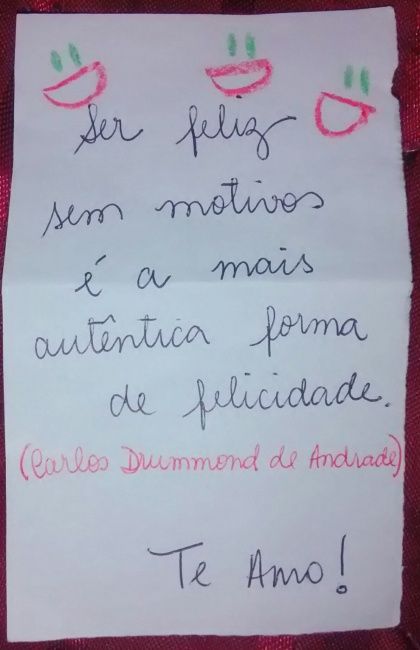 Ser feliz
sem motivos
é a mais
autêntica forma
de felicidade.
(Carlos Drummond de Andrade)
Te Amo!